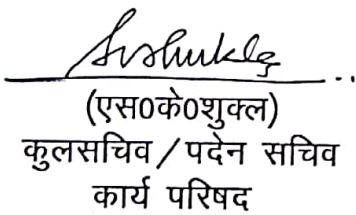 SKShukla
(एस0के0शुक्ल)
कुलसचिव / पदेन सचिव
कार्य परिषद